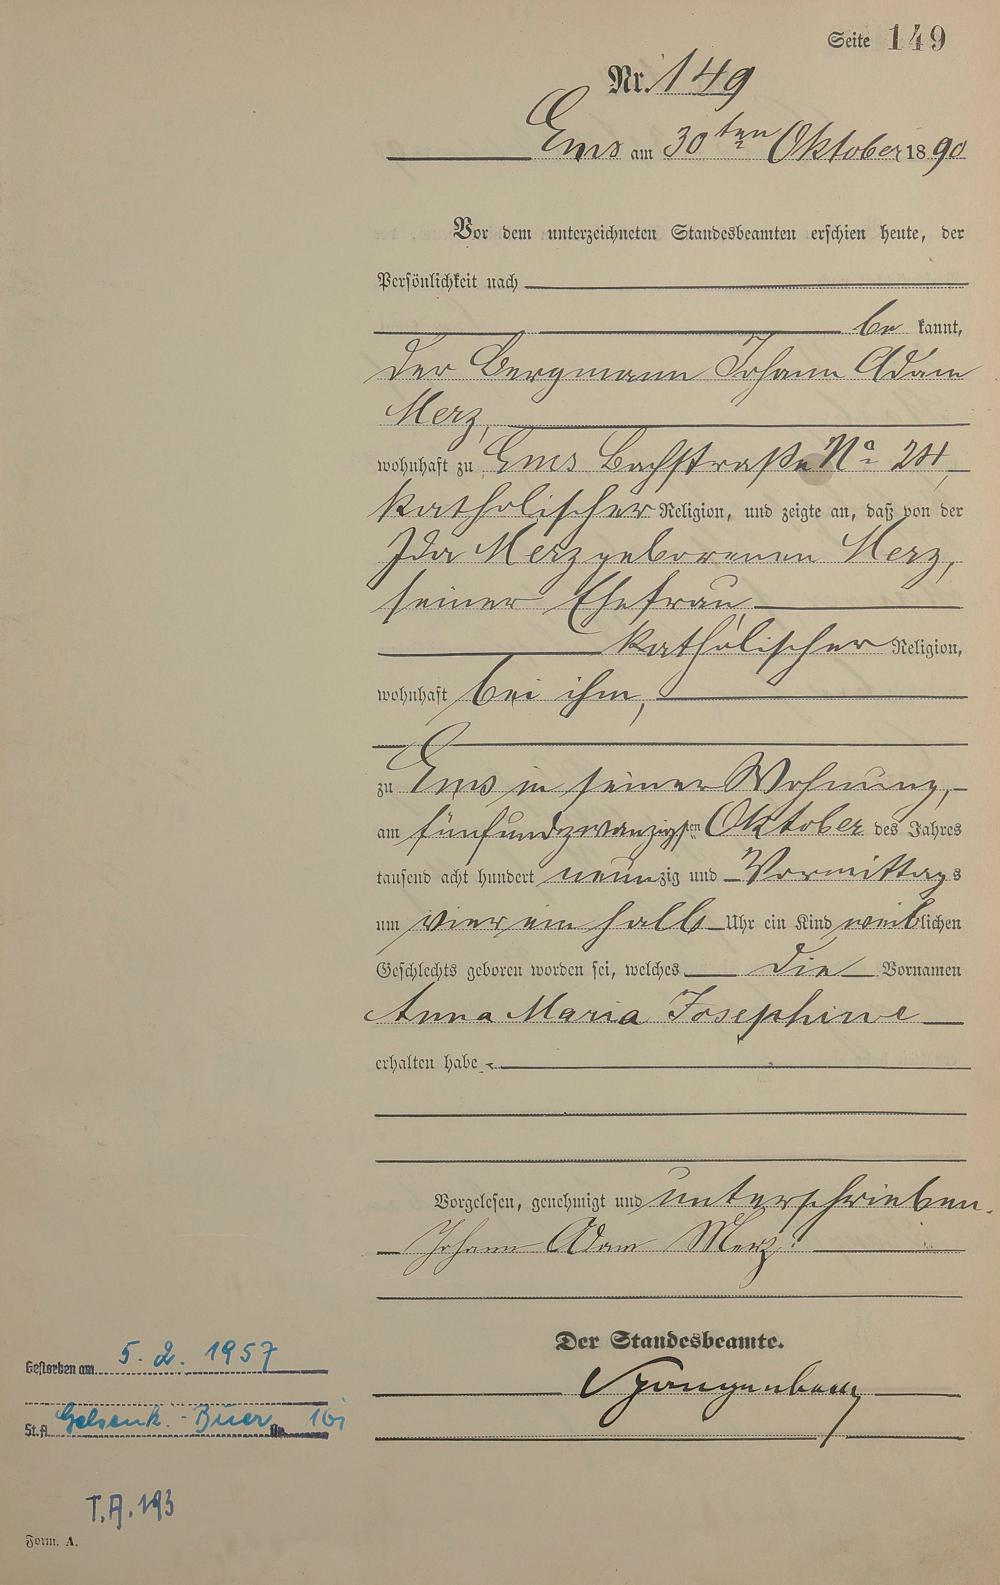 Seite 149
Nr. 149
Ems am 30ten Oktober 1890
Vor dem unterzeichneten Standesbeamten erschien heute, der
Persönlichkeit nach
be kannt,
der Bergmann Johann Adam
Merz,
wohnhaft zu Ems Bachstraße No 24,
katholischer Religion, und zeigte an, daß von der
Ida Merz geborenen Merz,
seiner Ehefrau
katholischer Religion,
wohnhaft bei ihm,
zu Ems in seiner Wohnung,
am fünfundzwanzigsten Oktober des Jahres
tausend acht hundert neunzig und Vormittags
um vier ein halb Uhr ein Kind weiblichen
Geschlechts geboren worden sei, welches die Vornamen
Anna Maria Josephine
erhalten habe
Vorgelesen, genehmigt und unterschrieben.
Johann Adam Merz
Der Standesbeamte.
Spangenberg
Gestorben am 5. 2. 1957
St.A. Gelsenk. - Buer Nr.
T.A. 193
Form. A.